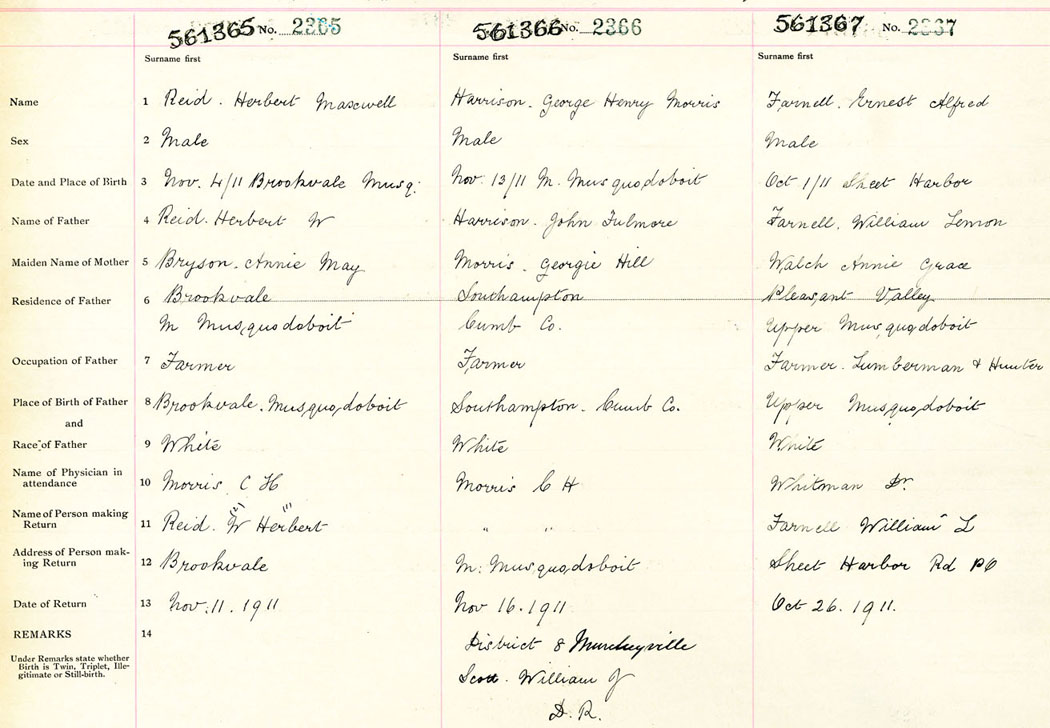 561365 No. 2365 561366 No. 2366 561367 No. 2367
Surname first Surname first Surname first
Name 1 Reid. Herbert Maxwell Harrison. George Henry Morris Farnell. Ernest Alfred
Sex 2 Male Male Male
Date and Place of Birth 3 Nov. 4/11 Brookvale Musq. Nov. 13/11 M. Musquodoboit Oct 1/11 Sheet Harbor
Name of Father 4 Reid. Herbert W Harrison. John Fulmore Farnell. William Lemon
Maiden Name of Mother 5 Bryson. Annie May Morris. Georgie Hill Walch Annie Grace
Residence of Father 6 Brookvale Southampton Pleasant Valley
M Musquodoboit Cumb Co. Upper Musquodoboit
Occupation of Father 7 Farmer Farmer Farmer. Lumberman & Hunter
Place of Birth of Father 8 Brookvale. Musquodoboit Southampton. Cumb Co. Upper Musquodoboit
and
Race of Father 9 White White White
Name of Physician in attendance 10 Morris C H Morris C H Whitman Dr.
Name of Person making Return 11 Reid. (2) W (1) Herbert " " Farnell William L
Address of Person making Return 12 Brookvale M. Musquodoboit Sheet Harbor Rd PO
Date of Return 13 Nov. 11. 1911 Nov 16. 1911 Oct 26. 1911.
REMARKS 14 District 8
Under Remarks state whether
Birth is Twin, Triplet, Ille-
gitimate or Still-birth.
Scott. William J
D. R.